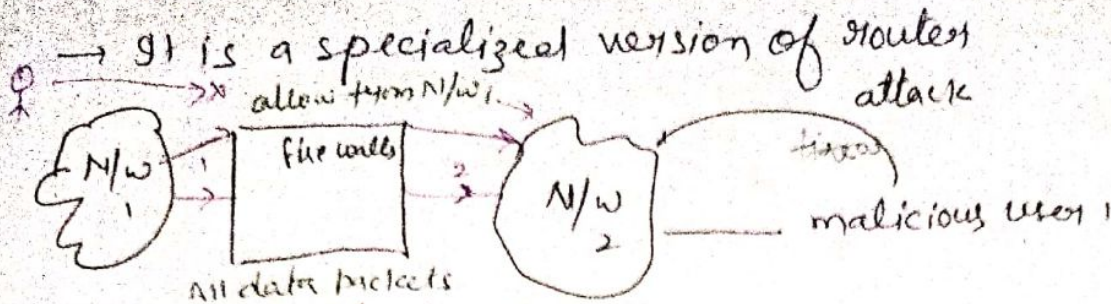 → It is a specialized version of router
attack
allow from N/w1
N/w
1
1
fire walls
2
N/w
2
malicious user
All data packets